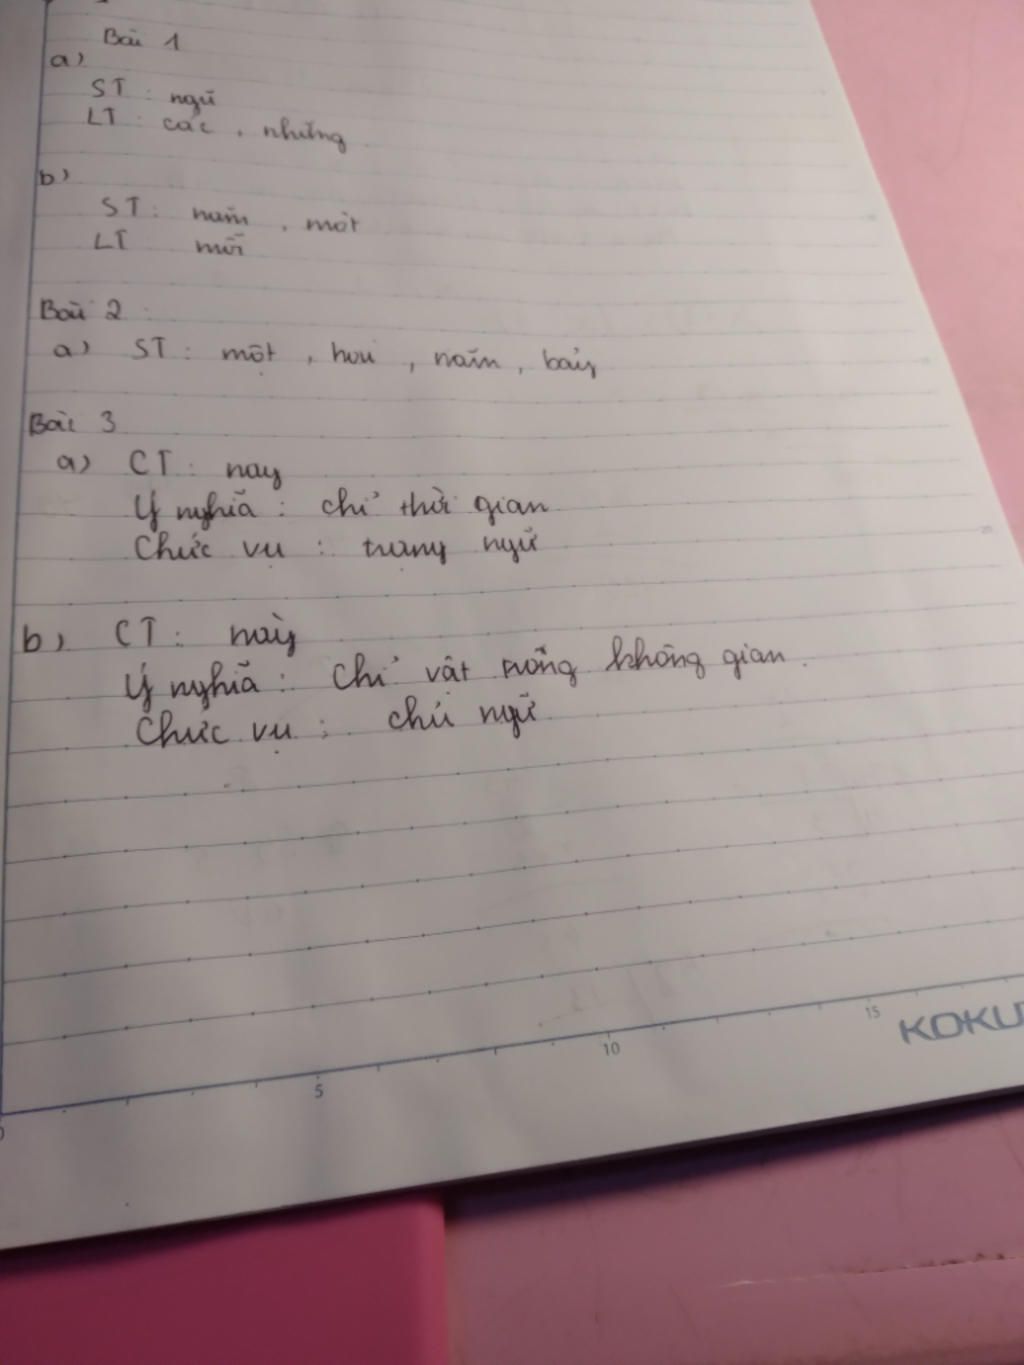 Bài 1
a)
ST : ngũ
LT : các , những
b)
ST : năm , một
LT mỗi
Bài 2 :
a) ST : một , hai , năm , bảy
Bài 3
a) CT : nay
Ý nghĩa : chỉ thời gian
Chức vụ : trạng ngữ
b) CT : này
Ý nghĩa : Chỉ vật trong không gian .
Chức vụ : chủ ngữ
5 10 15
KOKU